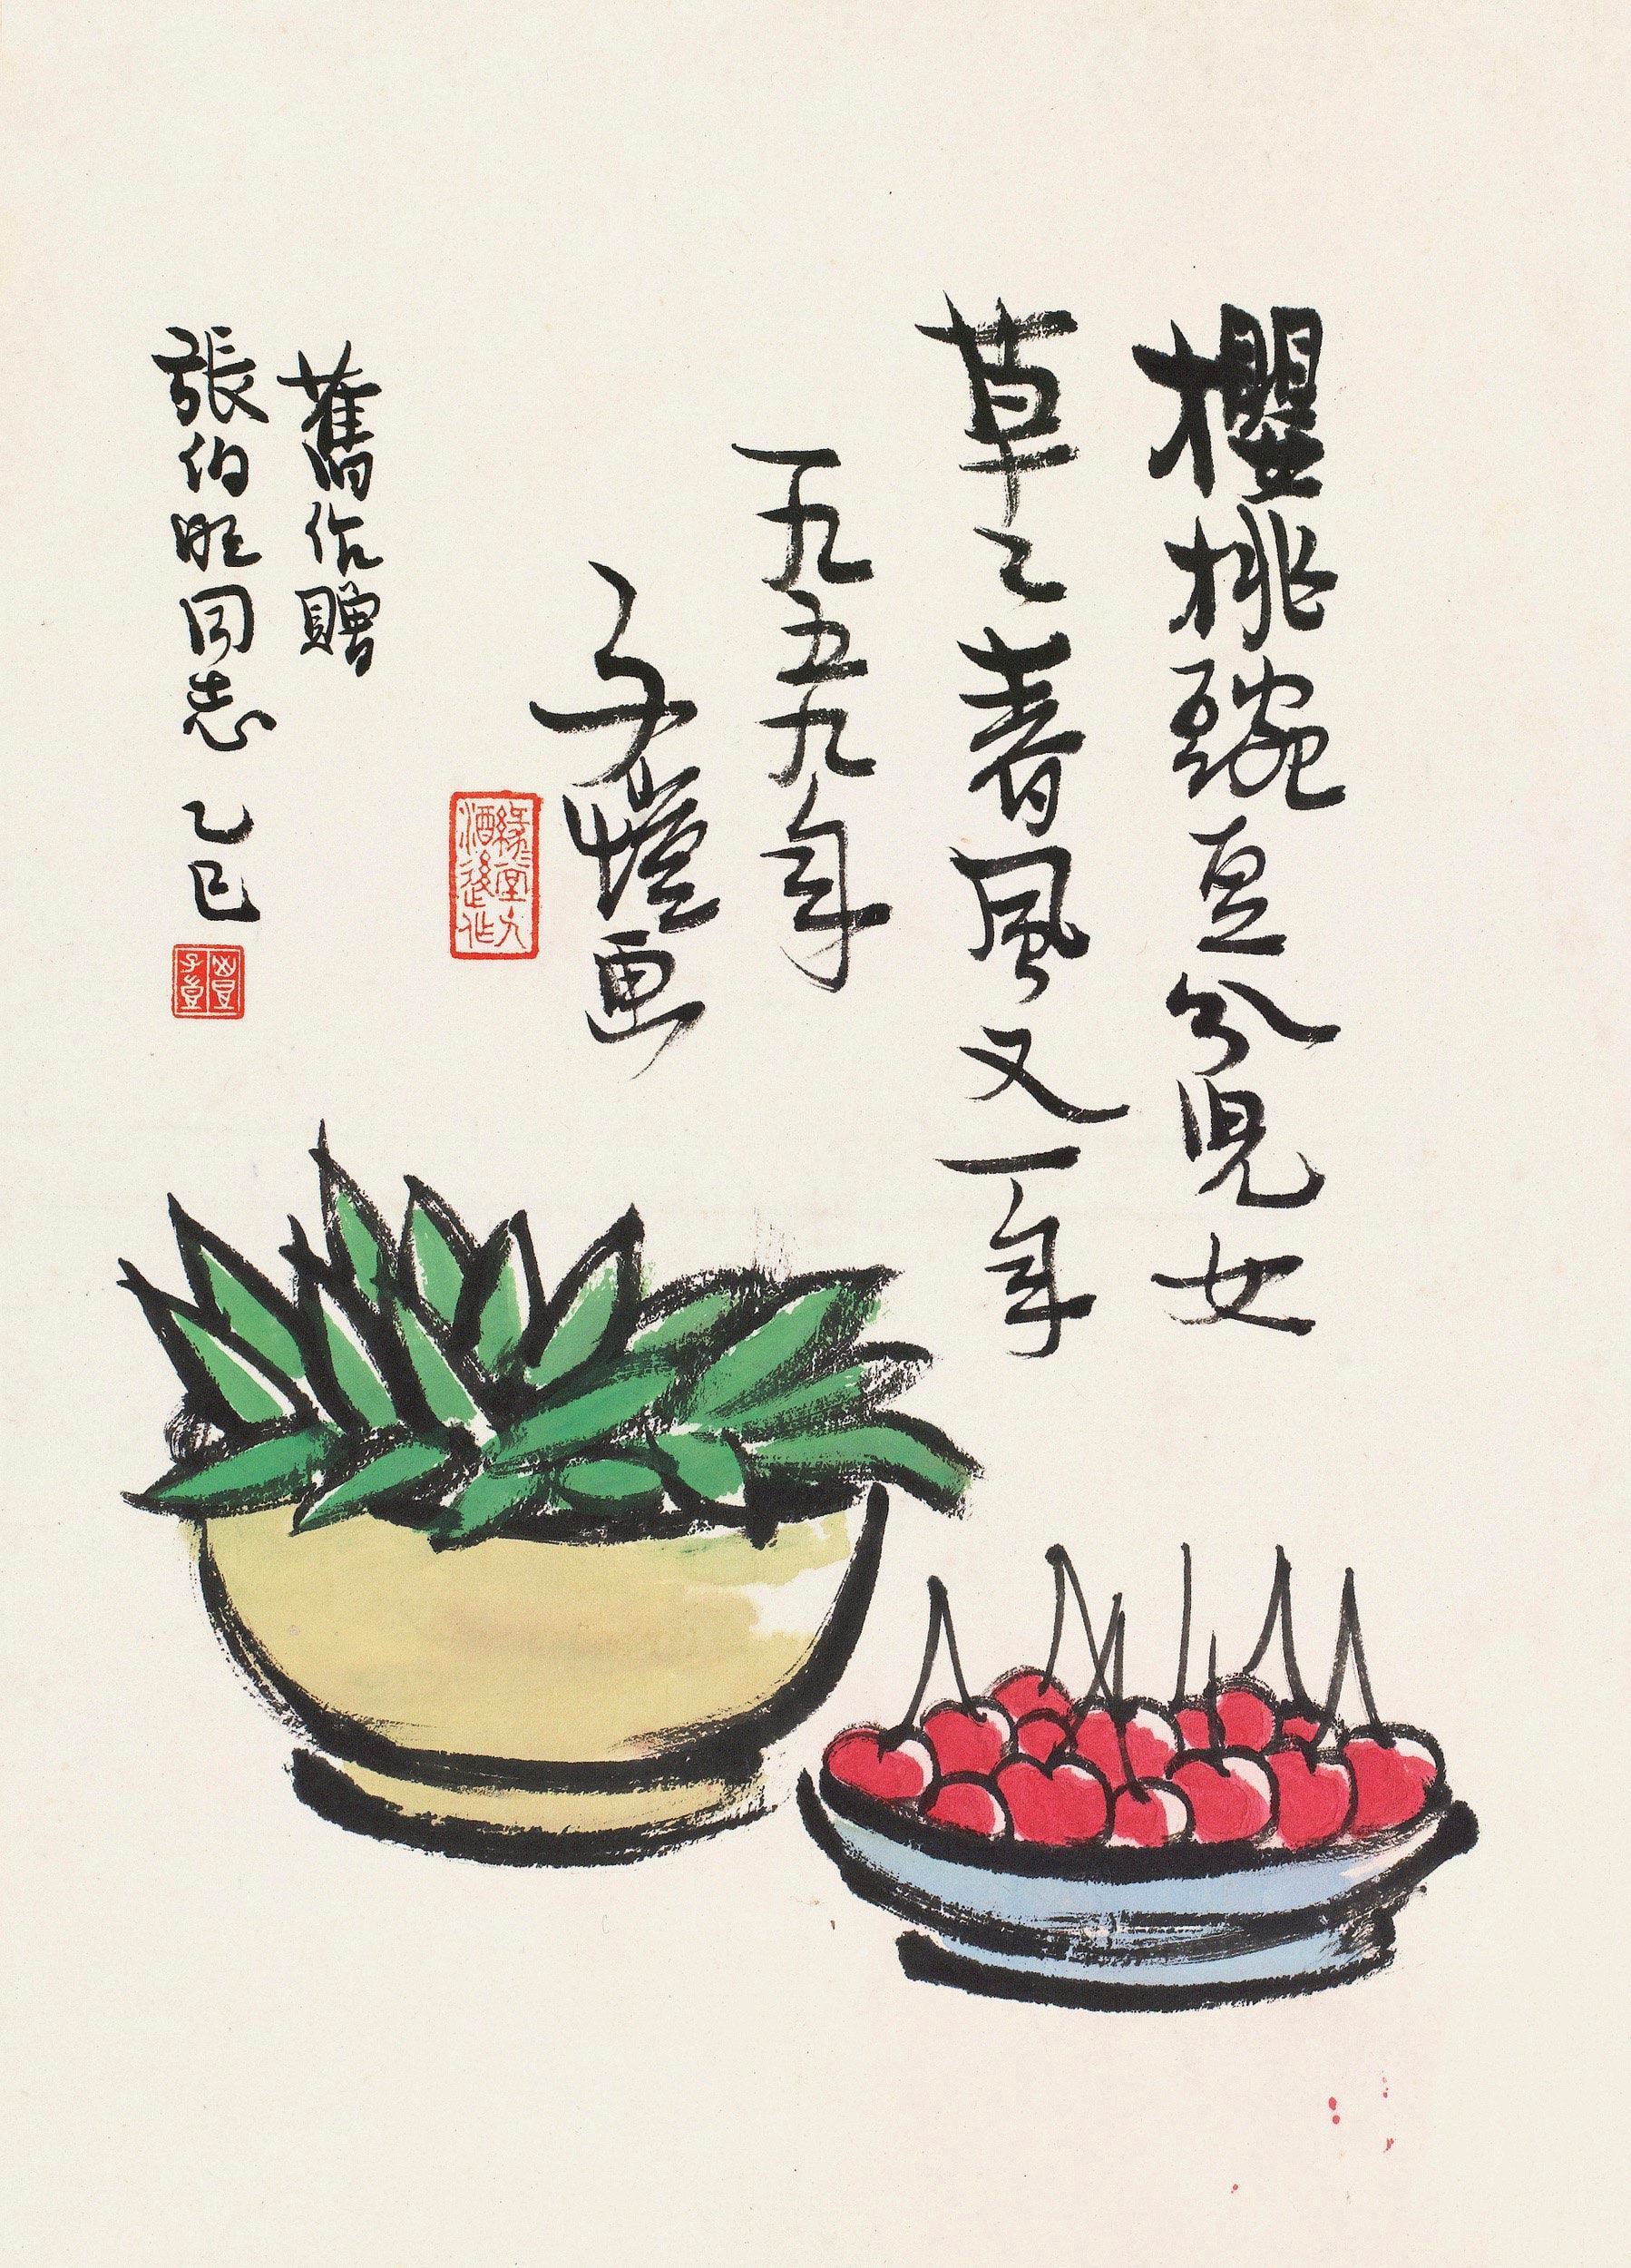 櫻桃豌豆分兒女
草々春風又一年
一九五九年
子愷画
緣々堂
酒後作
舊作贈
張伯旺同志 乙巳